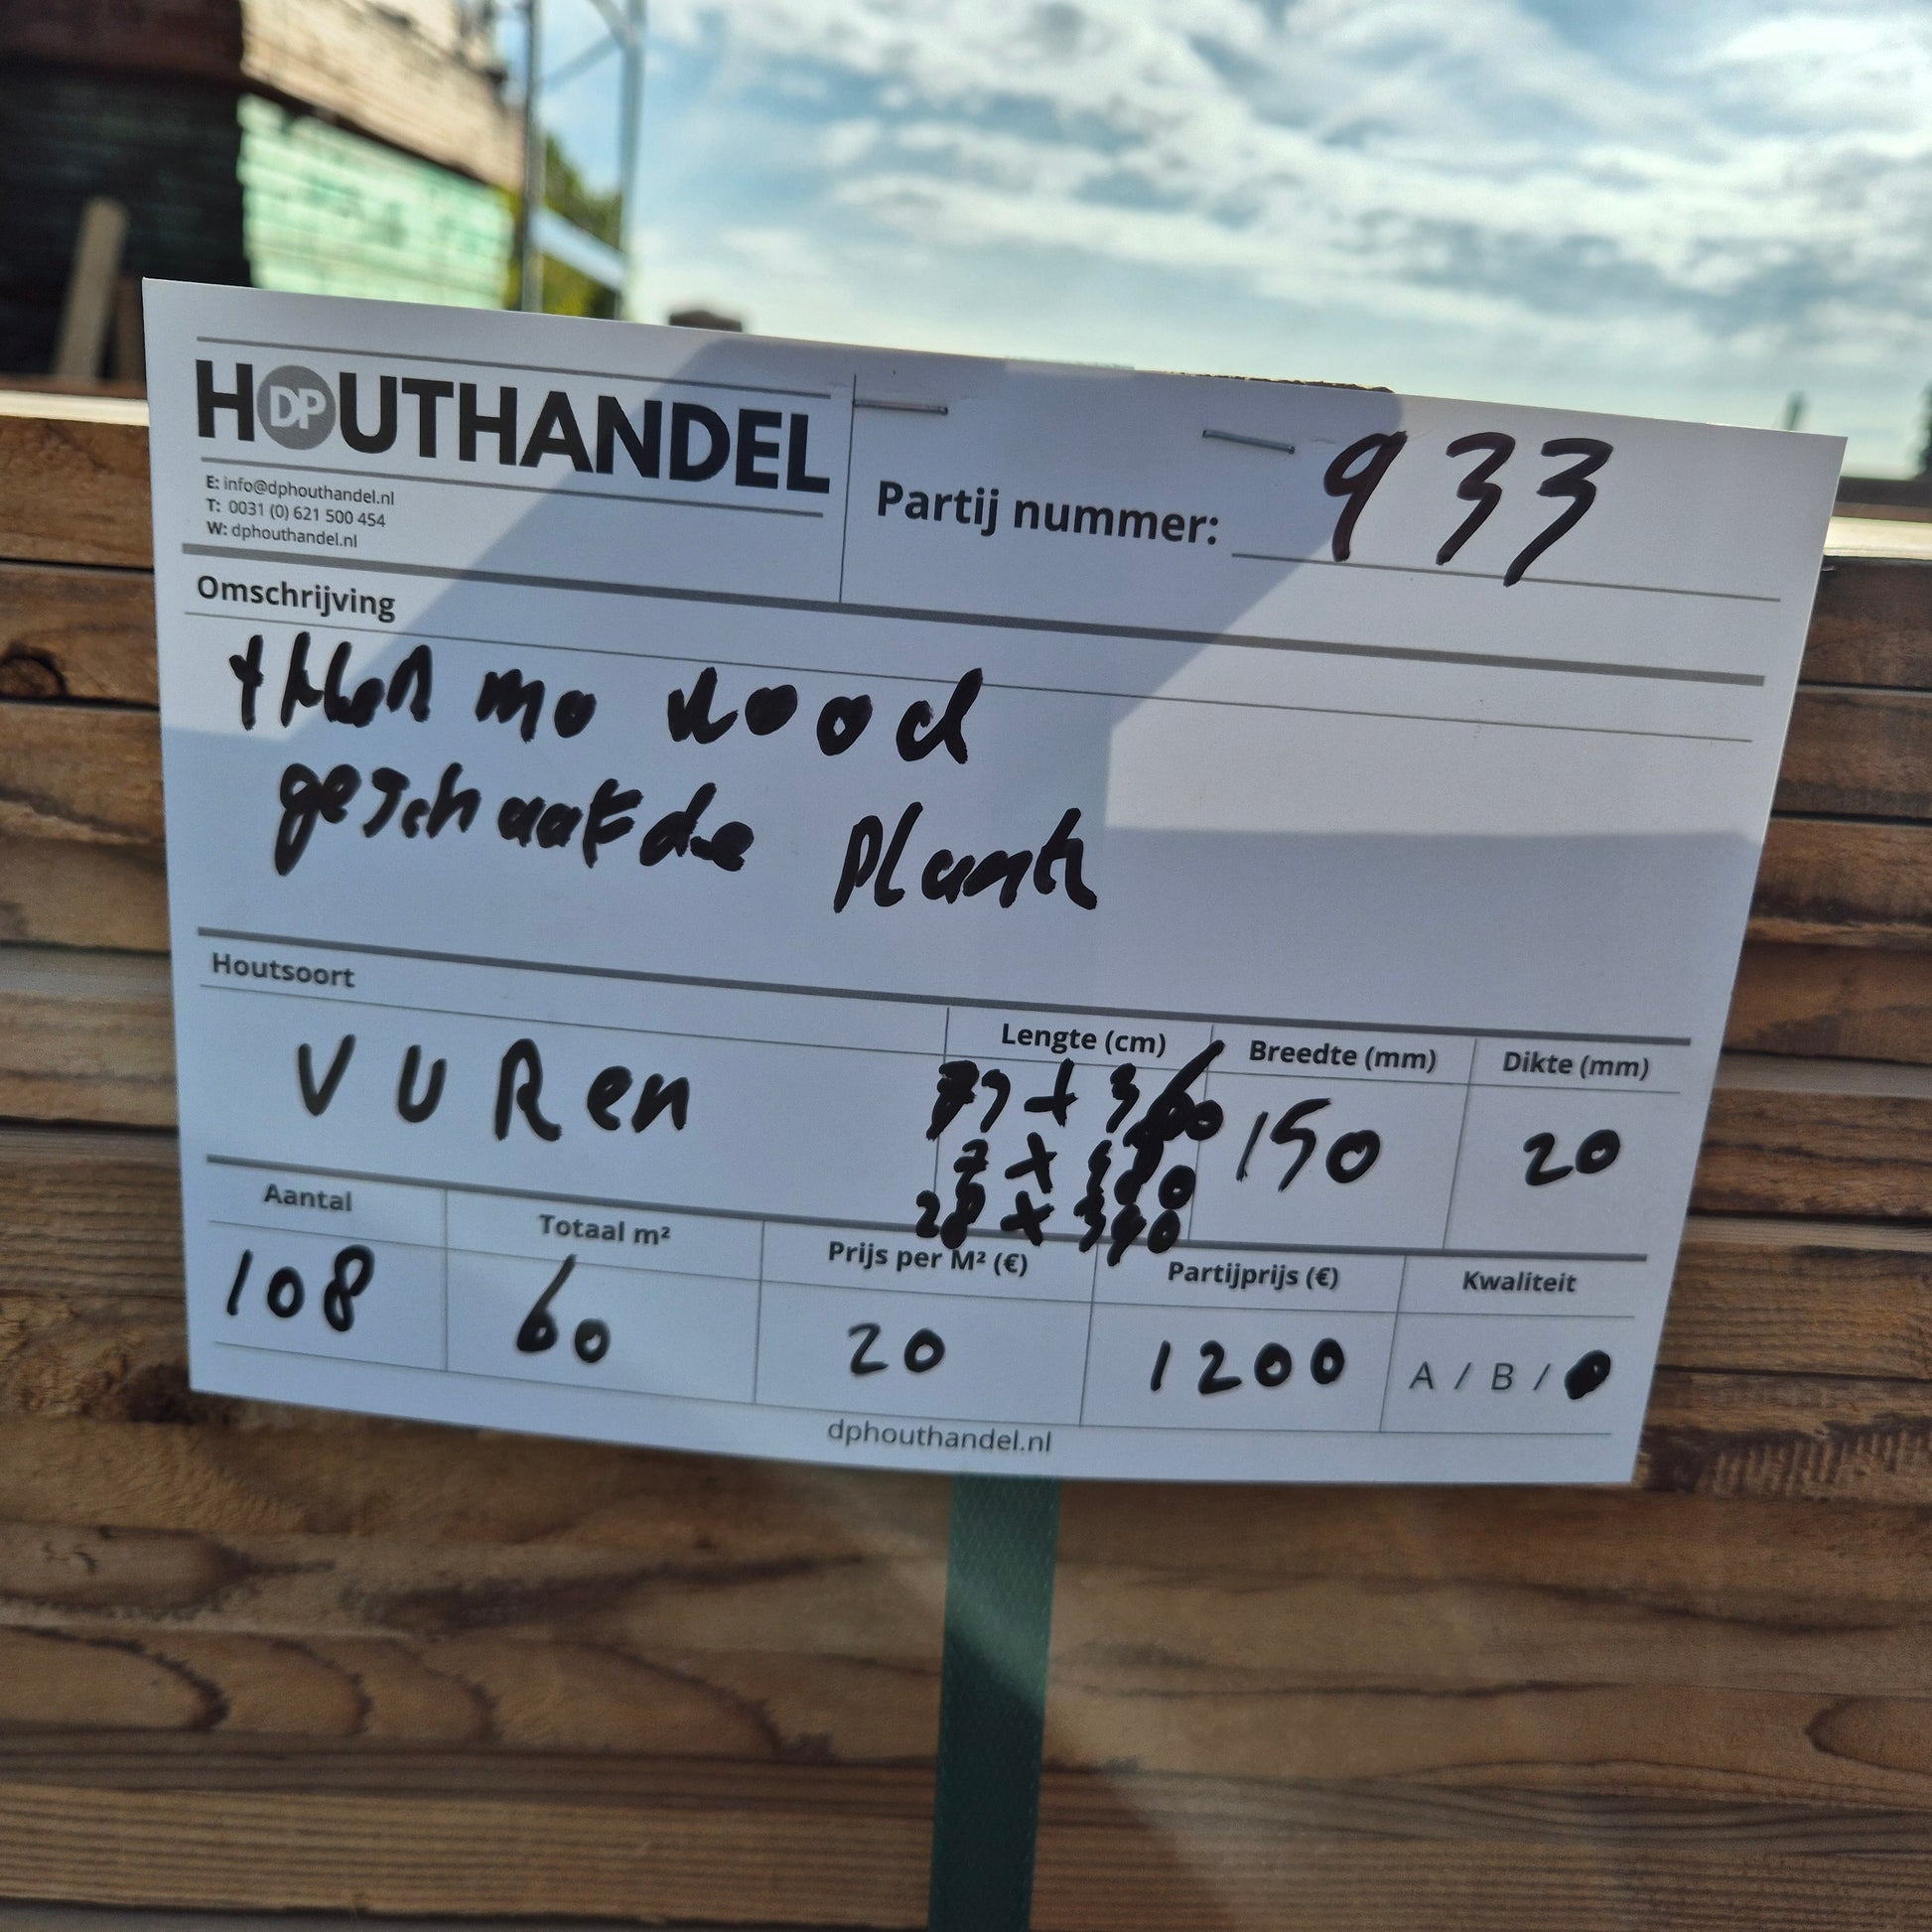 HOUTHANDEL
DP
E: info@dphouthandel.nl
T: 0031 (0) 621 500 454
W: dphouthandel.nl
Partij nummer: 933
Omschrijving
mo
geschaafde Plank
Houtsoort
VUREN
Lengte (cm)
Breedte (mm)
Dikte (mm)
150
20
Aantal
Totaal m²
Prijs per M² (€)
Partijprijs (€)
Kwaliteit
108
60
20
1200
A / B /
dphouthandel.nl